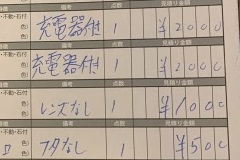 ・不動・石付 備考 点数 見積り金額
色) 充電器付 1 ¥2000
・不動・石付 備考 点数 見積り金額
色) 充電器付 1 ¥2000
・不動・石付 備考 点数 見積り金額
色) レンズなし 1 ¥1000
・不動・石付 備考 点数 見積り金額
色) フタなし 1 ¥500